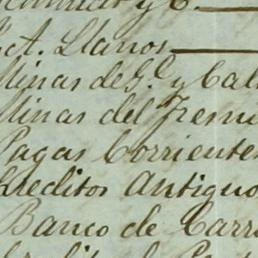 y C.
Act. Llanos
Minas de Gl. y Cal
Minas del Fresni
Pagas Corrientes
Creditos Antiguo
Banco de Carr